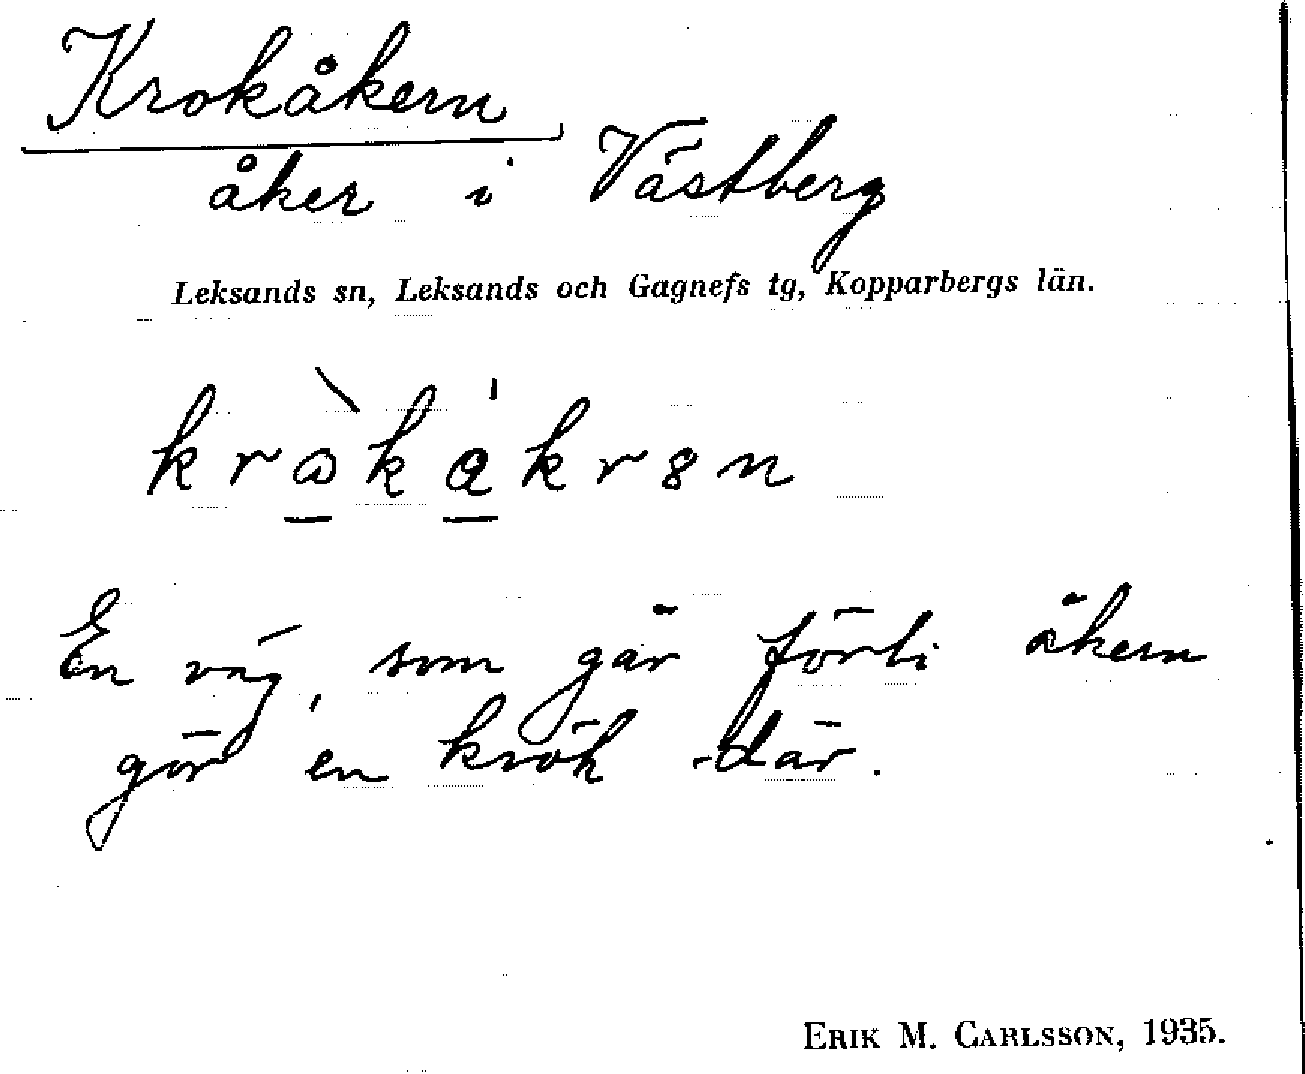 Krokåkern
åker i Västberg
Leksands sn, Leksands och Gagnefs tg, Kopparbergs län.
En väg, som går förbi åkern
gör en krok där.
ERIK M. CARLSSON, 1935.